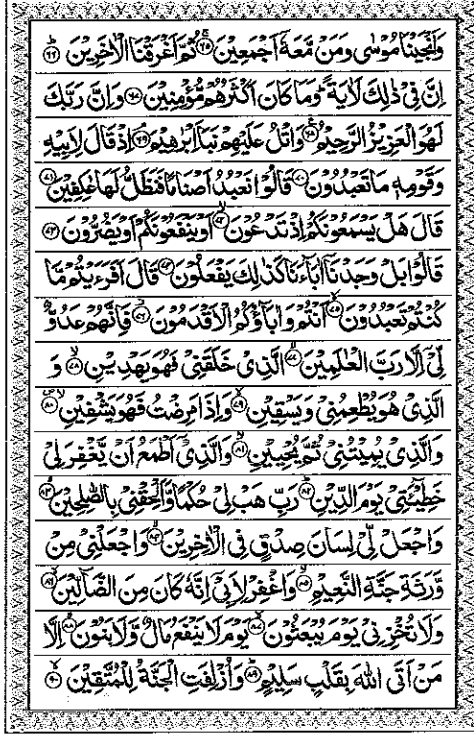 وَاَنْجَيْنَا مُوْسٰى وَمَنْ مَّعَهٗۤ اَجْمَعِيْنَ ۚ‏﴿۶۵﴾ ثُمَّ اَغْرَقْنَا الْاٰخَرِيْنَ ؕ‏﴿۶۶﴾
اِنَّ فِىْ ذٰلِكَ لَاٰيَةً ؕ وَمَا كَانَ اَكْثَرُهُمْ مُّؤْمِنِيْنَ ﴿۶۷﴾ وَاِنَّ رَبَّكَ
لَهُوَ الْعَزِيْزُ الرَّحِيْمُ ﴿۶۸﴾ وَاتْلُ عَلَيْهِمْ نَبَاَ اِبْرٰهِيْمَ ۘ﴿۶۹﴾ اِذْ قَالَ لِاَبِيْهِ
وَقَوْمِهٖ مَا تَعْبُدُوْنَ ﴿۷۰﴾ قَالُوْا نَعْبُدُ اَصْنَامًا فَنَظَلُّ لَهَا عٰكِفِيْنَ ﴿۷۱﴾
قَالَ هَلْ يَسْمَعُوْنَكُمْ اِذْ تَدْعُوْنَ ۙ﴿۷۲﴾ اَوْ يَنْفَعُوْنَكُمْ اَوْ يَضُرُّوْنَ ﴿۷۳﴾
قَالُوْا بَلْ وَجَدْنَاۤ اٰبَآءَنَا كَذٰلِكَ يَفْعَلُوْنَ ﴿۷۴﴾ قَالَ اَفَرَءَيْتُمْ مَّا
كُنْتُمْ تَعْبُدُوْنَ ۙ﴿۷۵﴾ اَنْتُمْ وَاٰبَآؤُكُمُ الْاَقْدَمُوْنَ ۖ﴿۷۶﴾ فَاِنَّهُمْ عَدُوٌّ
لِّىْۤ اِلَّا رَبَّ الْعٰلَمِيْنَ ۙ﴿۷۷﴾ الَّذِىْ خَلَقَنِىْ فَهُوَ يَهْدِيْنِ ۙ﴿۷۸﴾ وَ
الَّذِىْ هُوَ يُطْعِمُنِىْ وَيَسْقِيْنِ ۙ﴿۷۹﴾ وَاِذَا مَرِضْتُ فَهُوَ يَشْفِيْنِ ۪ۙ﴿۸۰﴾
وَالَّذِىْ يُمِيْتُنِىْ ثُمَّ يُحْيِيْنِ ۙ﴿۸۱﴾ وَالَّذِىْۤ اَطْمَعُ اَنْ يَّغْفِرَ لِىْ
خَطِيْٓئَتِىْ يَوْمَ الدِّيْنِ ؕ﴿۸۲﴾ رَبِّ هَبْ لِىْ حُكْمًا وَّاَلْحِقْنِىْ بِالصّٰلِحِيْنَ ۙ﴿۸۳﴾
وَاجْعَلْ لِّىْ لِسَانَ صِدْقٍ فِى الْاٰخِرِيْنَ ۙ﴿۸۴﴾ وَاجْعَلْنِىْ مِنْ
وَّرَثَةِ جَنَّةِ النَّعِيْمِ ۙ﴿۸۵﴾ وَاغْفِرْ لِاَبِىْۤ اِنَّهٗ كَانَ مِنَ الضَّآلِّيْنَ ۙ﴿۸۶﴾
وَلَا تُخْزِنِىْ يَوْمَ يُبْعَثُوْنَ ۙ﴿۸۷﴾ يَوْمَ لَا يَنْفَعُ مَالٌ وَّلَا بَنُوْنَ ۙ﴿۸۸﴾ اِلَّا
مَنْ اَتَى اللّٰهَ بِقَلْبٍ سَلِيْمٍ ؕ﴿۸۹﴾ وَاُزْلِفَتِ الْجَنَّةُ لِلْمُتَّقِيْنَ ۙ﴿۹۰﴾